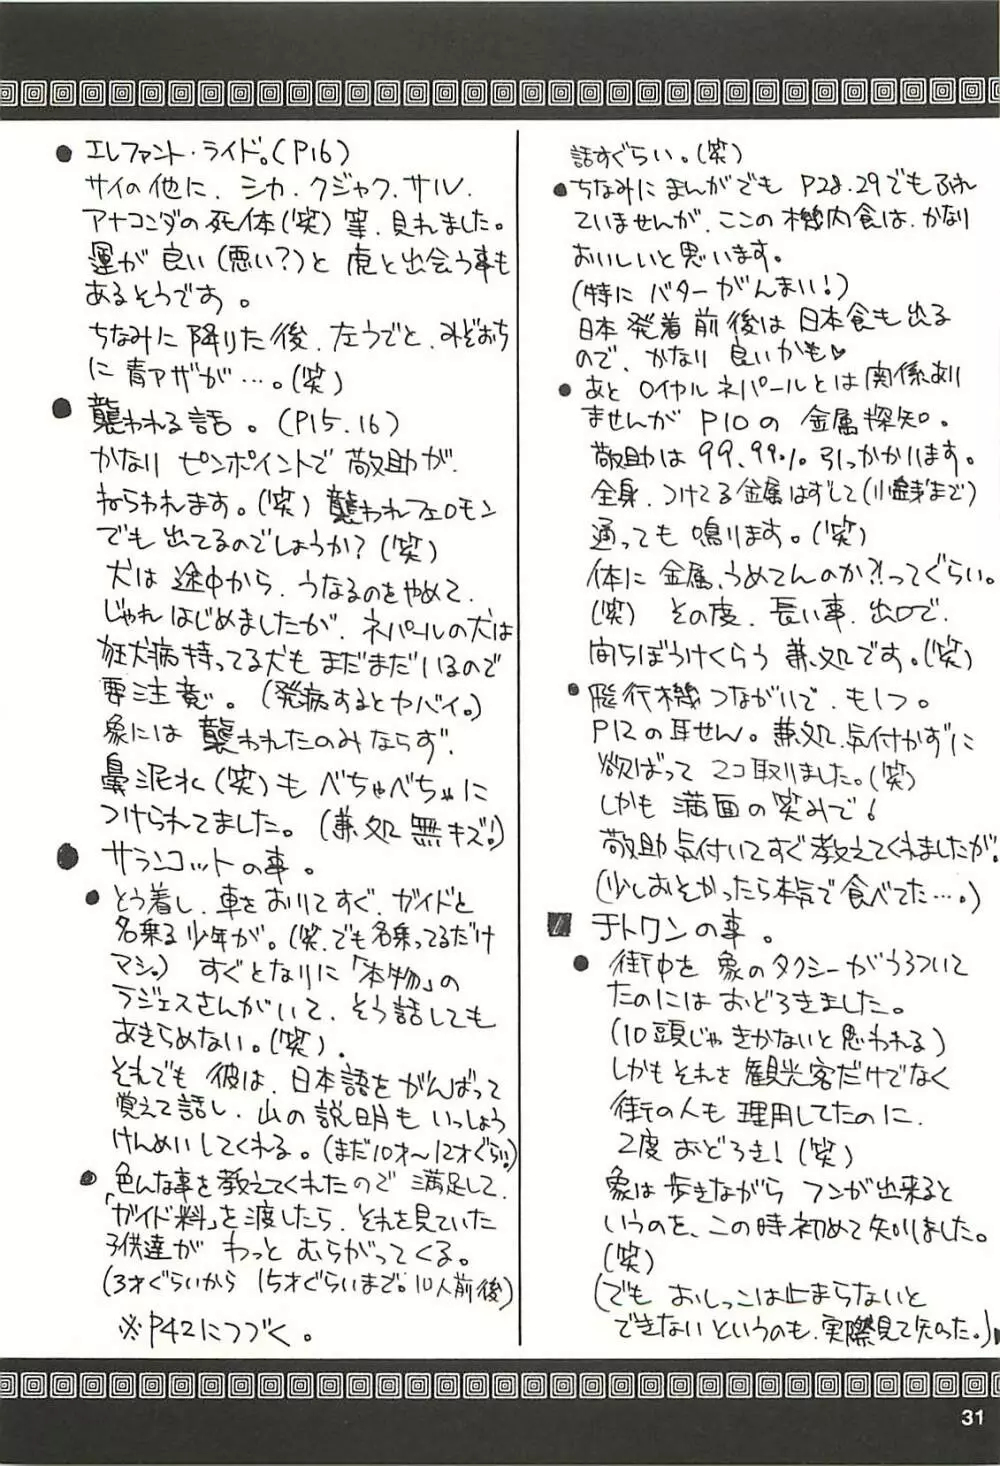 ● エレファント・ライド。(P16)
サイの他に、シカ、クジャク、サル、
アナコンダの死体(笑)等、見れました。
運が良い(悪い?)と虎と出会う事も
あるそうです。
ちなみに降りた後、左うでと、みぞおち
に青アザが…。(笑)
● 襲われる話。(P15.16)
かなりピンポイントで敬助が、
ねらわれます。(笑)襲われフェロモン
でも出てるのでしょうか?(笑)
犬は途中から、うなるのをやめて、
じゃれはじめましたが、ネパールの犬は
狂犬病持ってる犬もまだまだいるので
要注意。(発病するとヤバイ。)
象には襲われたのみならず、
鼻泥水(笑)もべちゃべちゃに
つけられてました。(兼処無キズ!)
● サランコットの事。
● とう着し、車をおりてすぐ、ガイドと
名乗る少年が。(笑、でも名乗ってるだけ
マシ。)すぐとなりに「本物」の
ラジェスさんがいて、そう話しても
あきらめない。(笑)、
それでも彼は、日本語をがんばって
覚えて話し、山の説明もいっしょう
けんめいしてくれる。(まだ10才〜12才ぐらい)
● 色んな事を教えてくれたので満足して、
「ガイド料」を渡したら、それを見ていた
子供達がわっとむらがってくる。
(3才ぐらいから15才ぐらいまで。10人前後)
※P42につづく。
話すぐらい。(笑)
● ちなみにまんがでもP28.29でもふれ
ていませんが、ここの機内食は、かなり
おいしいと思います。
(特にバターがんまい!)
日本発着前後は日本食も出る
ので、かなり良いかも♥
● あとロイヤルネパールとは関係あり
ませんがP10の金属探知。
敬助は99.99%引っかかります。
全身、つけてる金属はずして(小銭まで)
通っても鳴ります。(笑)
体に金属、うめてんのか?!ってぐらい。
(笑)その度、長い事、出口で、
待ちぼうけくらう兼処です。(笑)
● 飛行機つながりで、も 1つ。
P12の耳せん。兼処、気付かずに
欲ばって2コ取りました。(笑)
しかも満面の笑みで!
敬助気付いてすぐ教えてくれましたが、
(少しおそかったら本気で食べてた…。)
■ チトワンの事。
● 街中を象のタクシーがうろついて
たのにはおどろきました。
(10頭じゃきかないと思われる)
しかもそれを観光客だけでなく
街の人も理用してたのに、
2度おどろき!(笑)
象は歩きながらフンが出来ると
いうのを、この時初めて知りました。
(笑)
(でもおしっこは止まらないと
できないというのも、実際見て知った。)
31